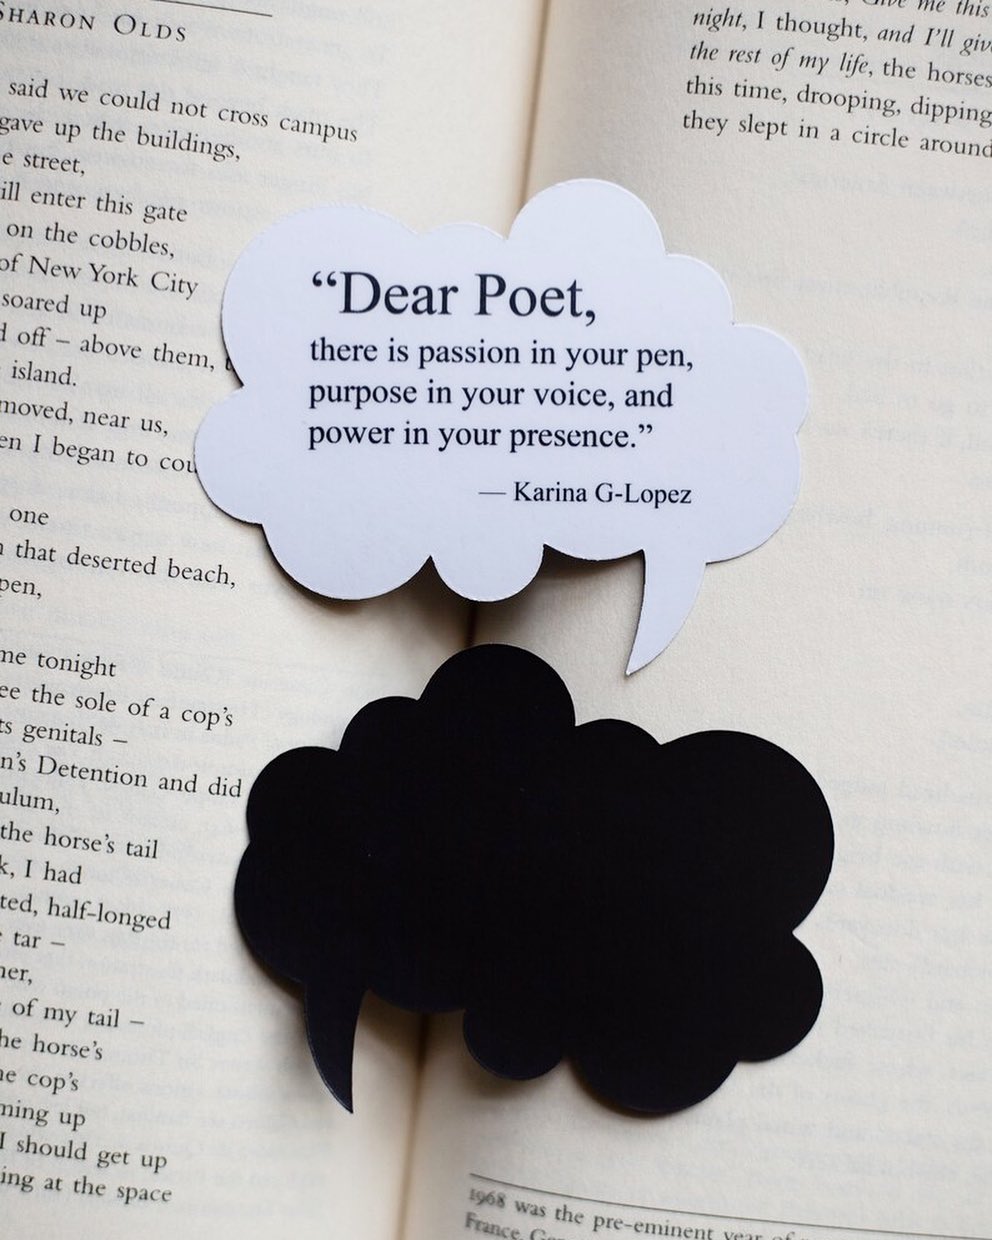 SHARON OLDS
said we could not cross campus
gave up the buildings,
e street,
ill enter this gate
on the cobbles,
of New York City
soared up
d off – above them,
island.
moved, near us,
en I began to cou
one
n that deserted beach,
pen,
me tonight
ee the sole of a cop's
ts genitals –
n's Detention and did
ulum,
the horse's tail
k, I had
ted, half-longed
e tar –
her,
of my tail –
he horse's
he cop's
ming up
I should get up
ing at the space
Give me this
night, I thought, and I'll giv
the rest of my life, the horses
this time, drooping, dipping
they slept in a circle around
“Dear Poet,
there is passion in your pen,
purpose in your voice, and
power in your presence.”
— Karina G-Lopez
1968 was the pre-eminent year of
France, Ge